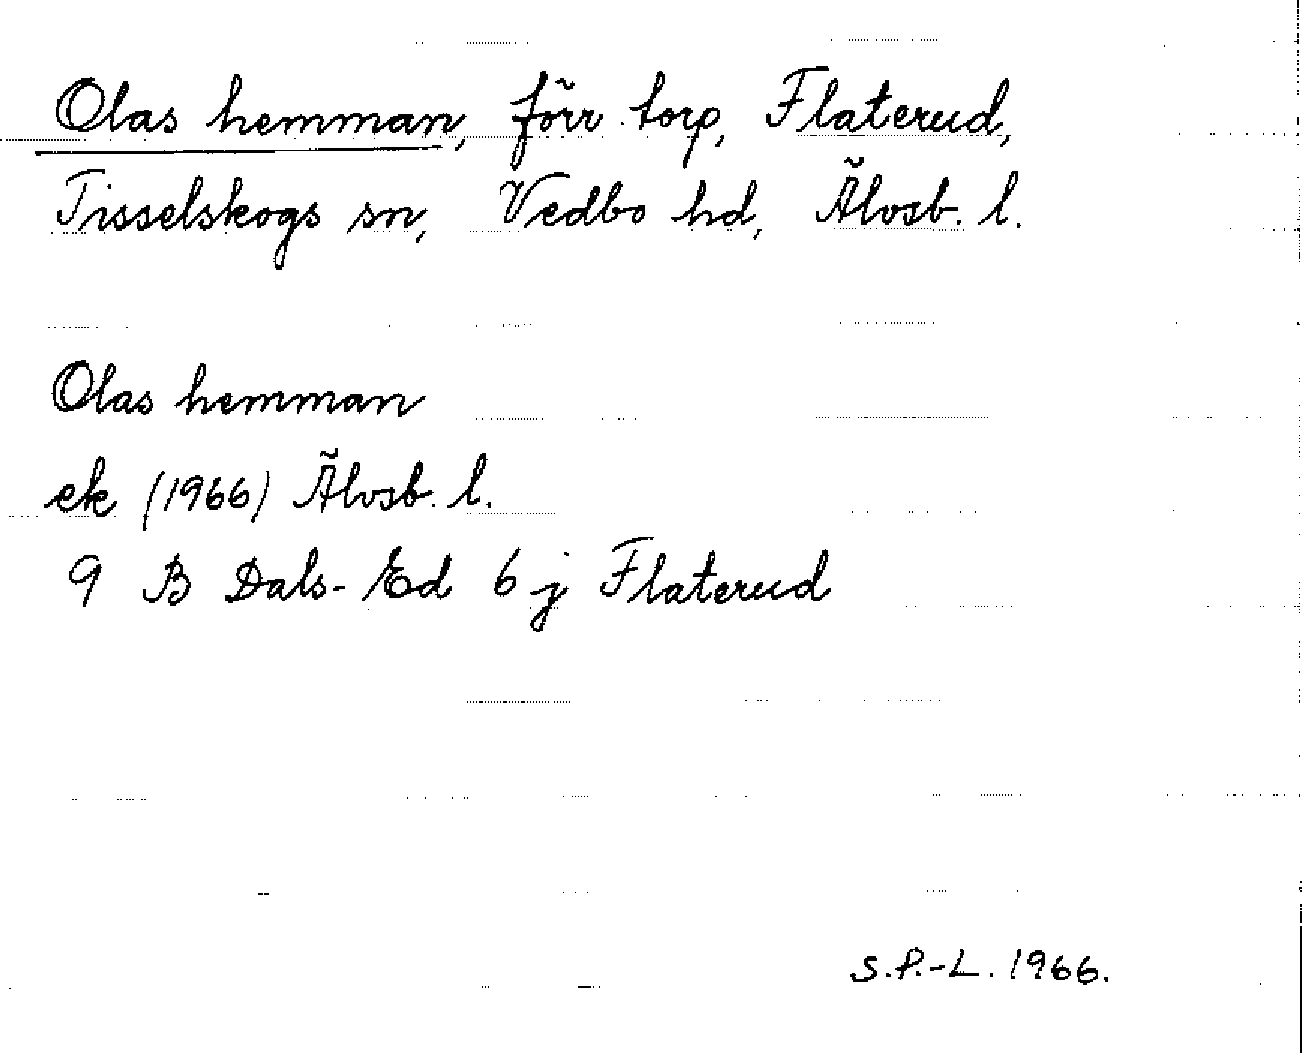 Olas hemman, förr torp, Flaterud,
Tisselskogs sn, Vedbo hd, Älvsb. l.
Olas hemman
ek (1966) Älvsb. l.
9 B Dals-Ed 6 j Flaterud
S.P.-L. 1966.